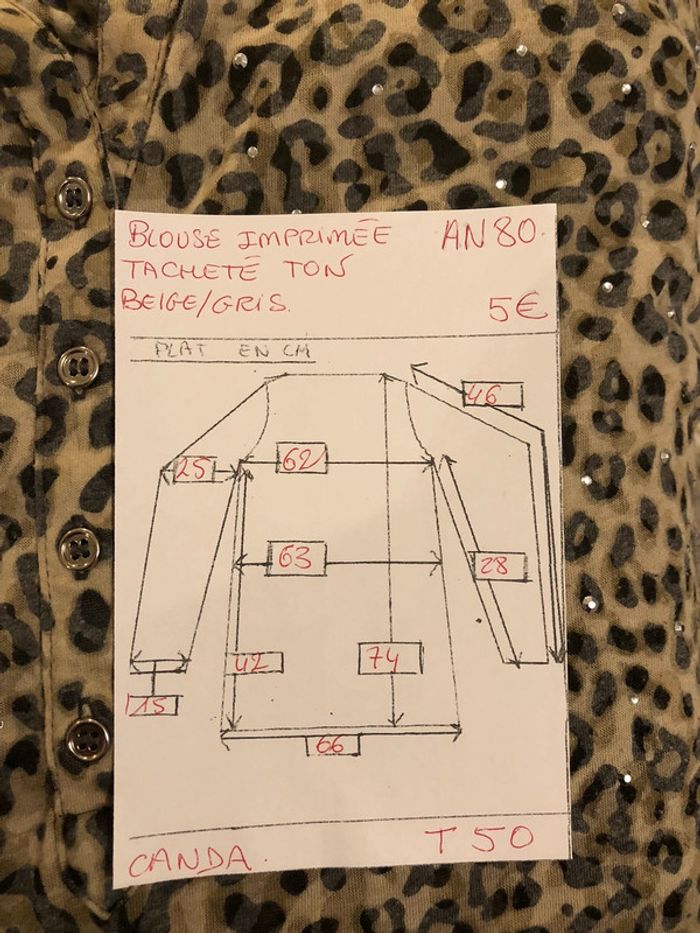 BLOUSE IMPRIMÉE AN 80.
TACHETÉ TON
BEIGE/GRIS. 5€
PLAT EN CM
46
25 62
63 28
42 74
15
66
CANDA. T 50